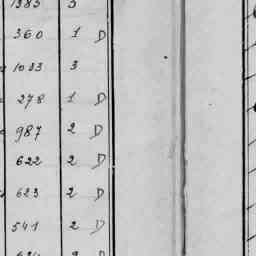 1383 3
360 1 D
1033 3
278 1 D
987 2 D
622 2 D
623 2 D
541 2 D